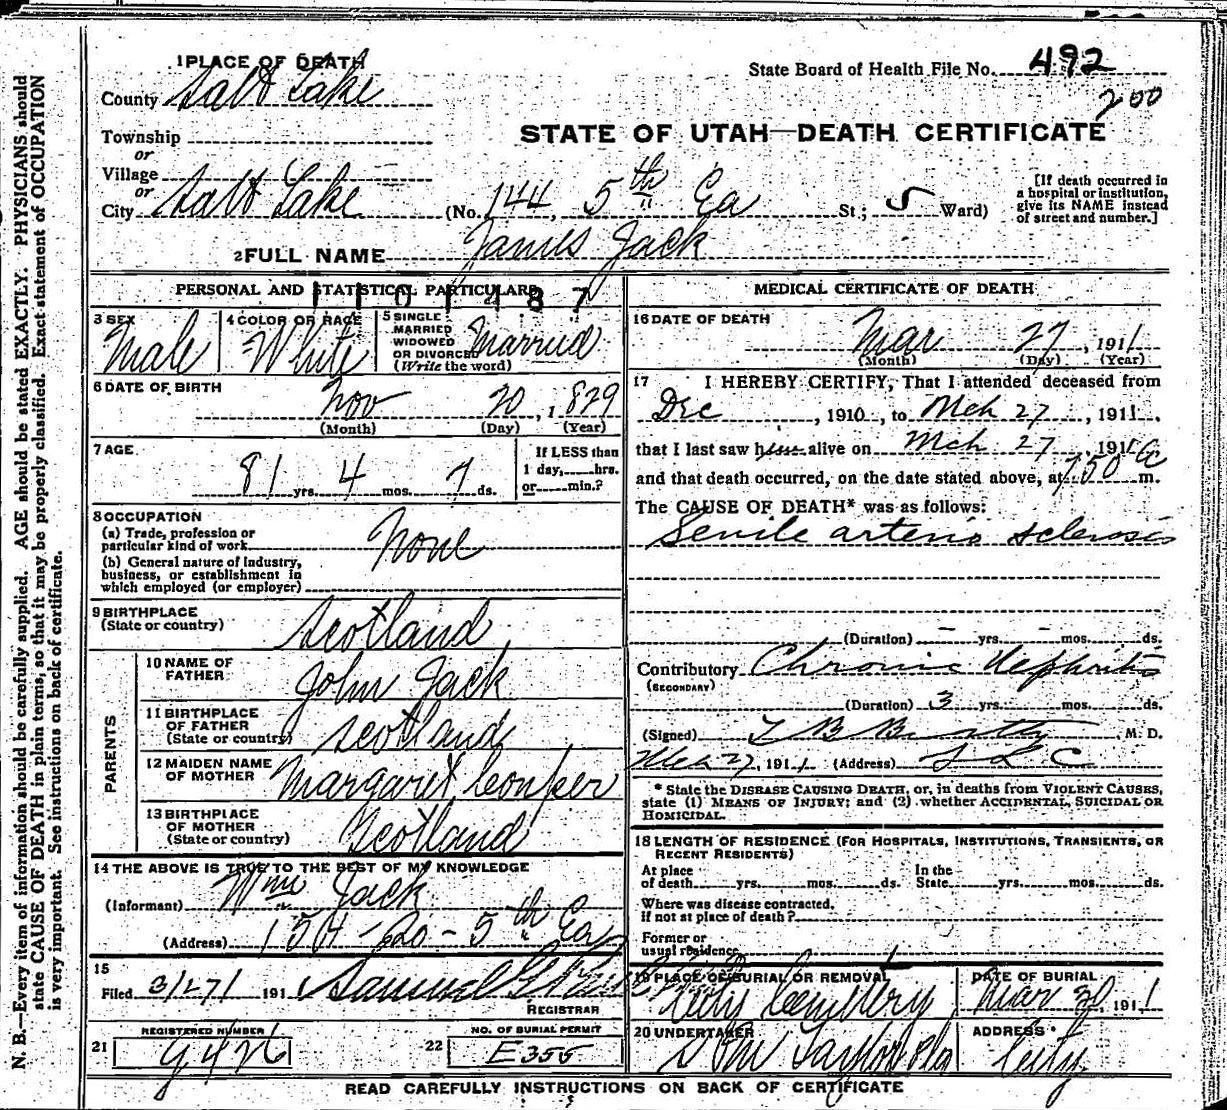 State Board of Health File No. 492
200
1 PLACE OF DEATH
County Salt Lake
Township
or
Village
or
City Salt Lake (No. 144, 5th Ea St; 5 Ward)
STATE OF UTAH—DEATH CERTIFICATE
[If death occurred in
a hospital or institution,
give its NAME instead
of street and number.]
2 FULL NAME James Jack
PERSONAL AND STATISTICAL PARTICULARS
1101487
3 SEX
Male
4 COLOR OR RACE
White
5 SINGLE
MARRIED
WIDOWED
OR DIVORCED
(Write the word)
Married
6 DATE OF BIRTH
Nov 20, 1829
(Month) (Day) (Year)
7 AGE
81 yrs. 4 mos. 7 ds.
If LESS than
1 day, hrs.
or min.?
8 OCCUPATION
(a) Trade, profession or
particular kind of work
None
(b) General nature of Industry,
business, or establishment in
which employed (or employer)
9 BIRTHPLACE
(State or country)
Scotland
PARENTS
10 NAME OF
FATHER
John Jack
11 BIRTHPLACE
OF FATHER
(State or country)
Scotland
12 MAIDEN NAME
OF MOTHER
Margaret Couper
13 BIRTHPLACE
OF MOTHER
(State or country)
Scotland
14 THE ABOVE IS TRUE TO THE BEST OF MY KNOWLEDGE
(Informant) Wm Jack
(Address) 5th Ea
15
Filed 3/27/ 191 Samuel G
REGISTRAR
REGISTERED NUMBER
21 9426
NO. OF BURIAL PERMIT
22 E355
MEDICAL CERTIFICATE OF DEATH
16 DATE OF DEATH
Mar 27, 1911
(Month) (Day) (Year)
17 I HEREBY CERTIFY, That I attended deceased from
Dec, 1910, to Mch 27, 1911,
that I last saw him alive on Mch 27 1911
and that death occurred, on the date stated above, at 7 50 a m.
The CAUSE OF DEATH* was as follows:
Senile arterio sclerosis
(Duration) yrs. mos. ds.
Contributory Chronic Nephritis
(SECONDARY)
(Duration) 3 yrs. mos. ds.
(Signed) T B Beatty M. D.
Mch 27, 1911 (Address) S L C
* State the DISEASE CAUSING DEATH, or, in deaths from VIOLENT CAUSES,
state (1) MEANS OF INJURY; and (2) whether ACCIDENTAL, SUICIDAL OR
HOMICIDAL.
18 LENGTH OF RESIDENCE (FOR HOSPITALS, INSTITUTIONS, TRANSIENTS, OR
RECENT RESIDENTS)
At place
of death yrs. mos. ds.
In the
State yrs. mos. ds.
Where was disease contracted,
if not at place of death?
Former or
usual residence
19 PLACE OF BURIAL OR REMOVAL
City Cemetery
DATE OF BURIAL
Mar 30, 1911
20 UNDERTAKER
Taylor
ADDRESS
City
READ CAREFULLY INSTRUCTIONS ON BACK OF CERTIFICATE
N. B.—Every item of information should be carefully supplied. AGE should be stated EXACTLY. PHYSICIANS should
state CAUSE OF DEATH in plain terms, so that it may be properly classified. Exact statement of OCCUPATION
is very important. See instructions on back of certificate.